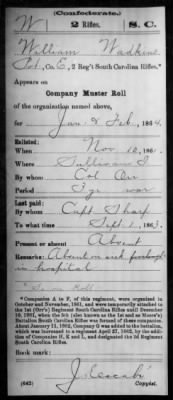 (Confederate.)
W 2 Rifles. S. C.
William Wadkins
Pvt, Co. E, 2 Reg't South Carolina Rifles.*
Appears on
Company Muster Roll
of the organization named above,
for Jan & Feb, 1864
Enlisted:
When Nov 10, 1861.
Where Sullivans I
By whom Col Orr
Period 3 yr war
Last paid:
By whom Capt Tharp
To what time Sept 1, 1863.
Present or absent Absent
Remarks: Absent on furlough
in hospital
*Companies A to F, of this regiment, were organized in
October and November, 1861, and were temporarily attached to the
1st (Orr's) Regiment South Carolina Rifles until December
Battalion South Carolina Rifles was formed of these companies.
About January 11, 1862, Company G was added to the battalion,
which was increased to a regiment April 27, 1862, by the addition
of Companies H, K and L, and designated the 2d Regiment
South Carolina Rifles.
Book mark:
(642)
Copyist.